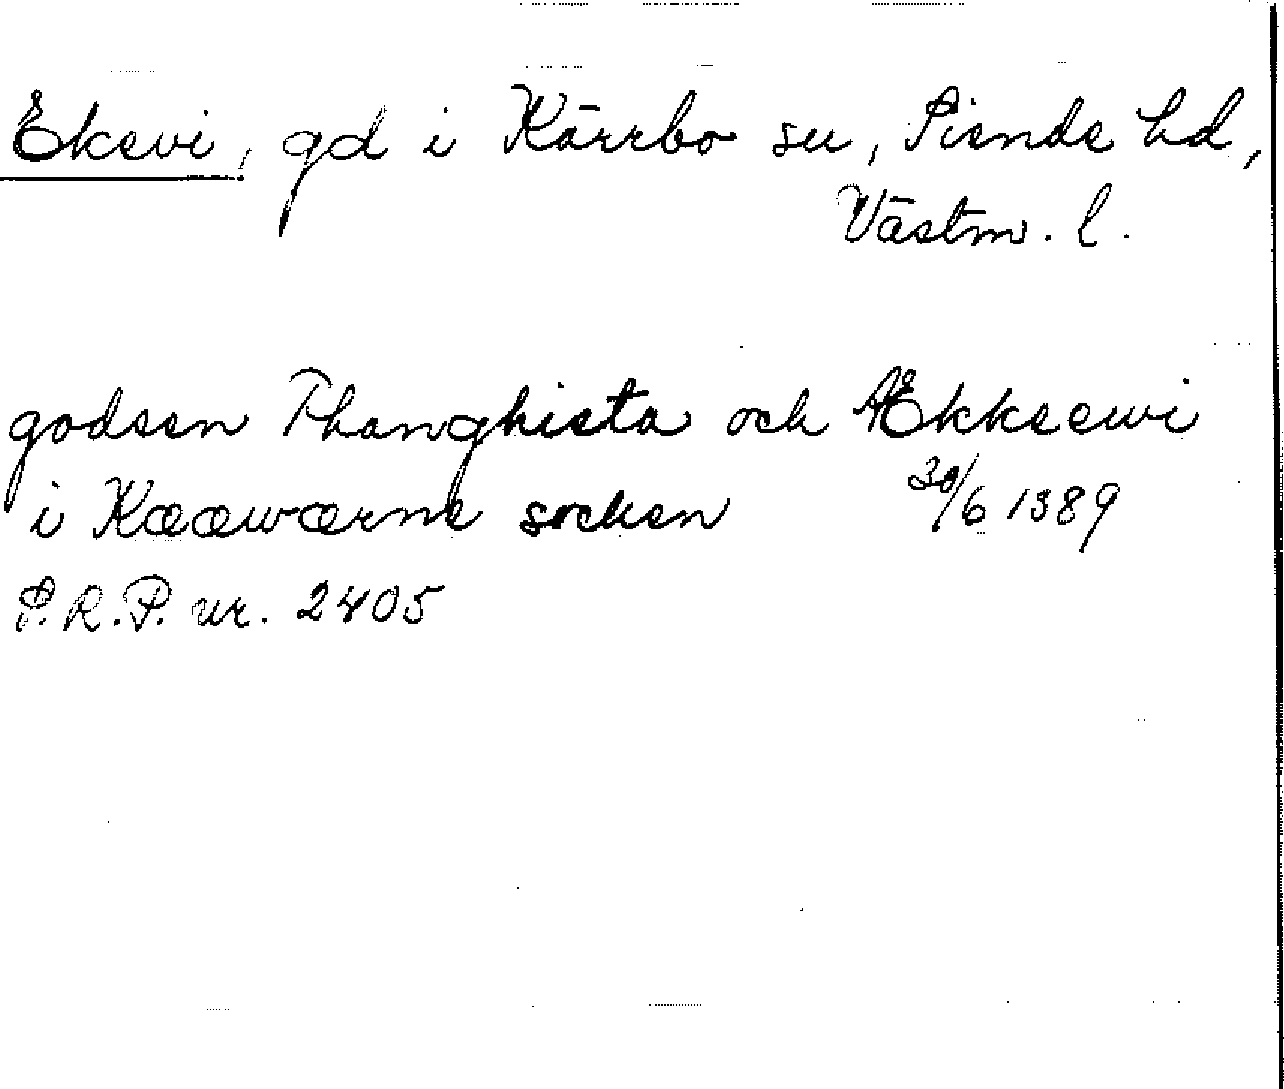 Ekevi, gd i Kärrbo sn, Siende hd,
Västm. l.
godsen Thanghista och Ækkeewi
i Kæædwærne socken 30/6 1389
S.R.P. nr. 2405